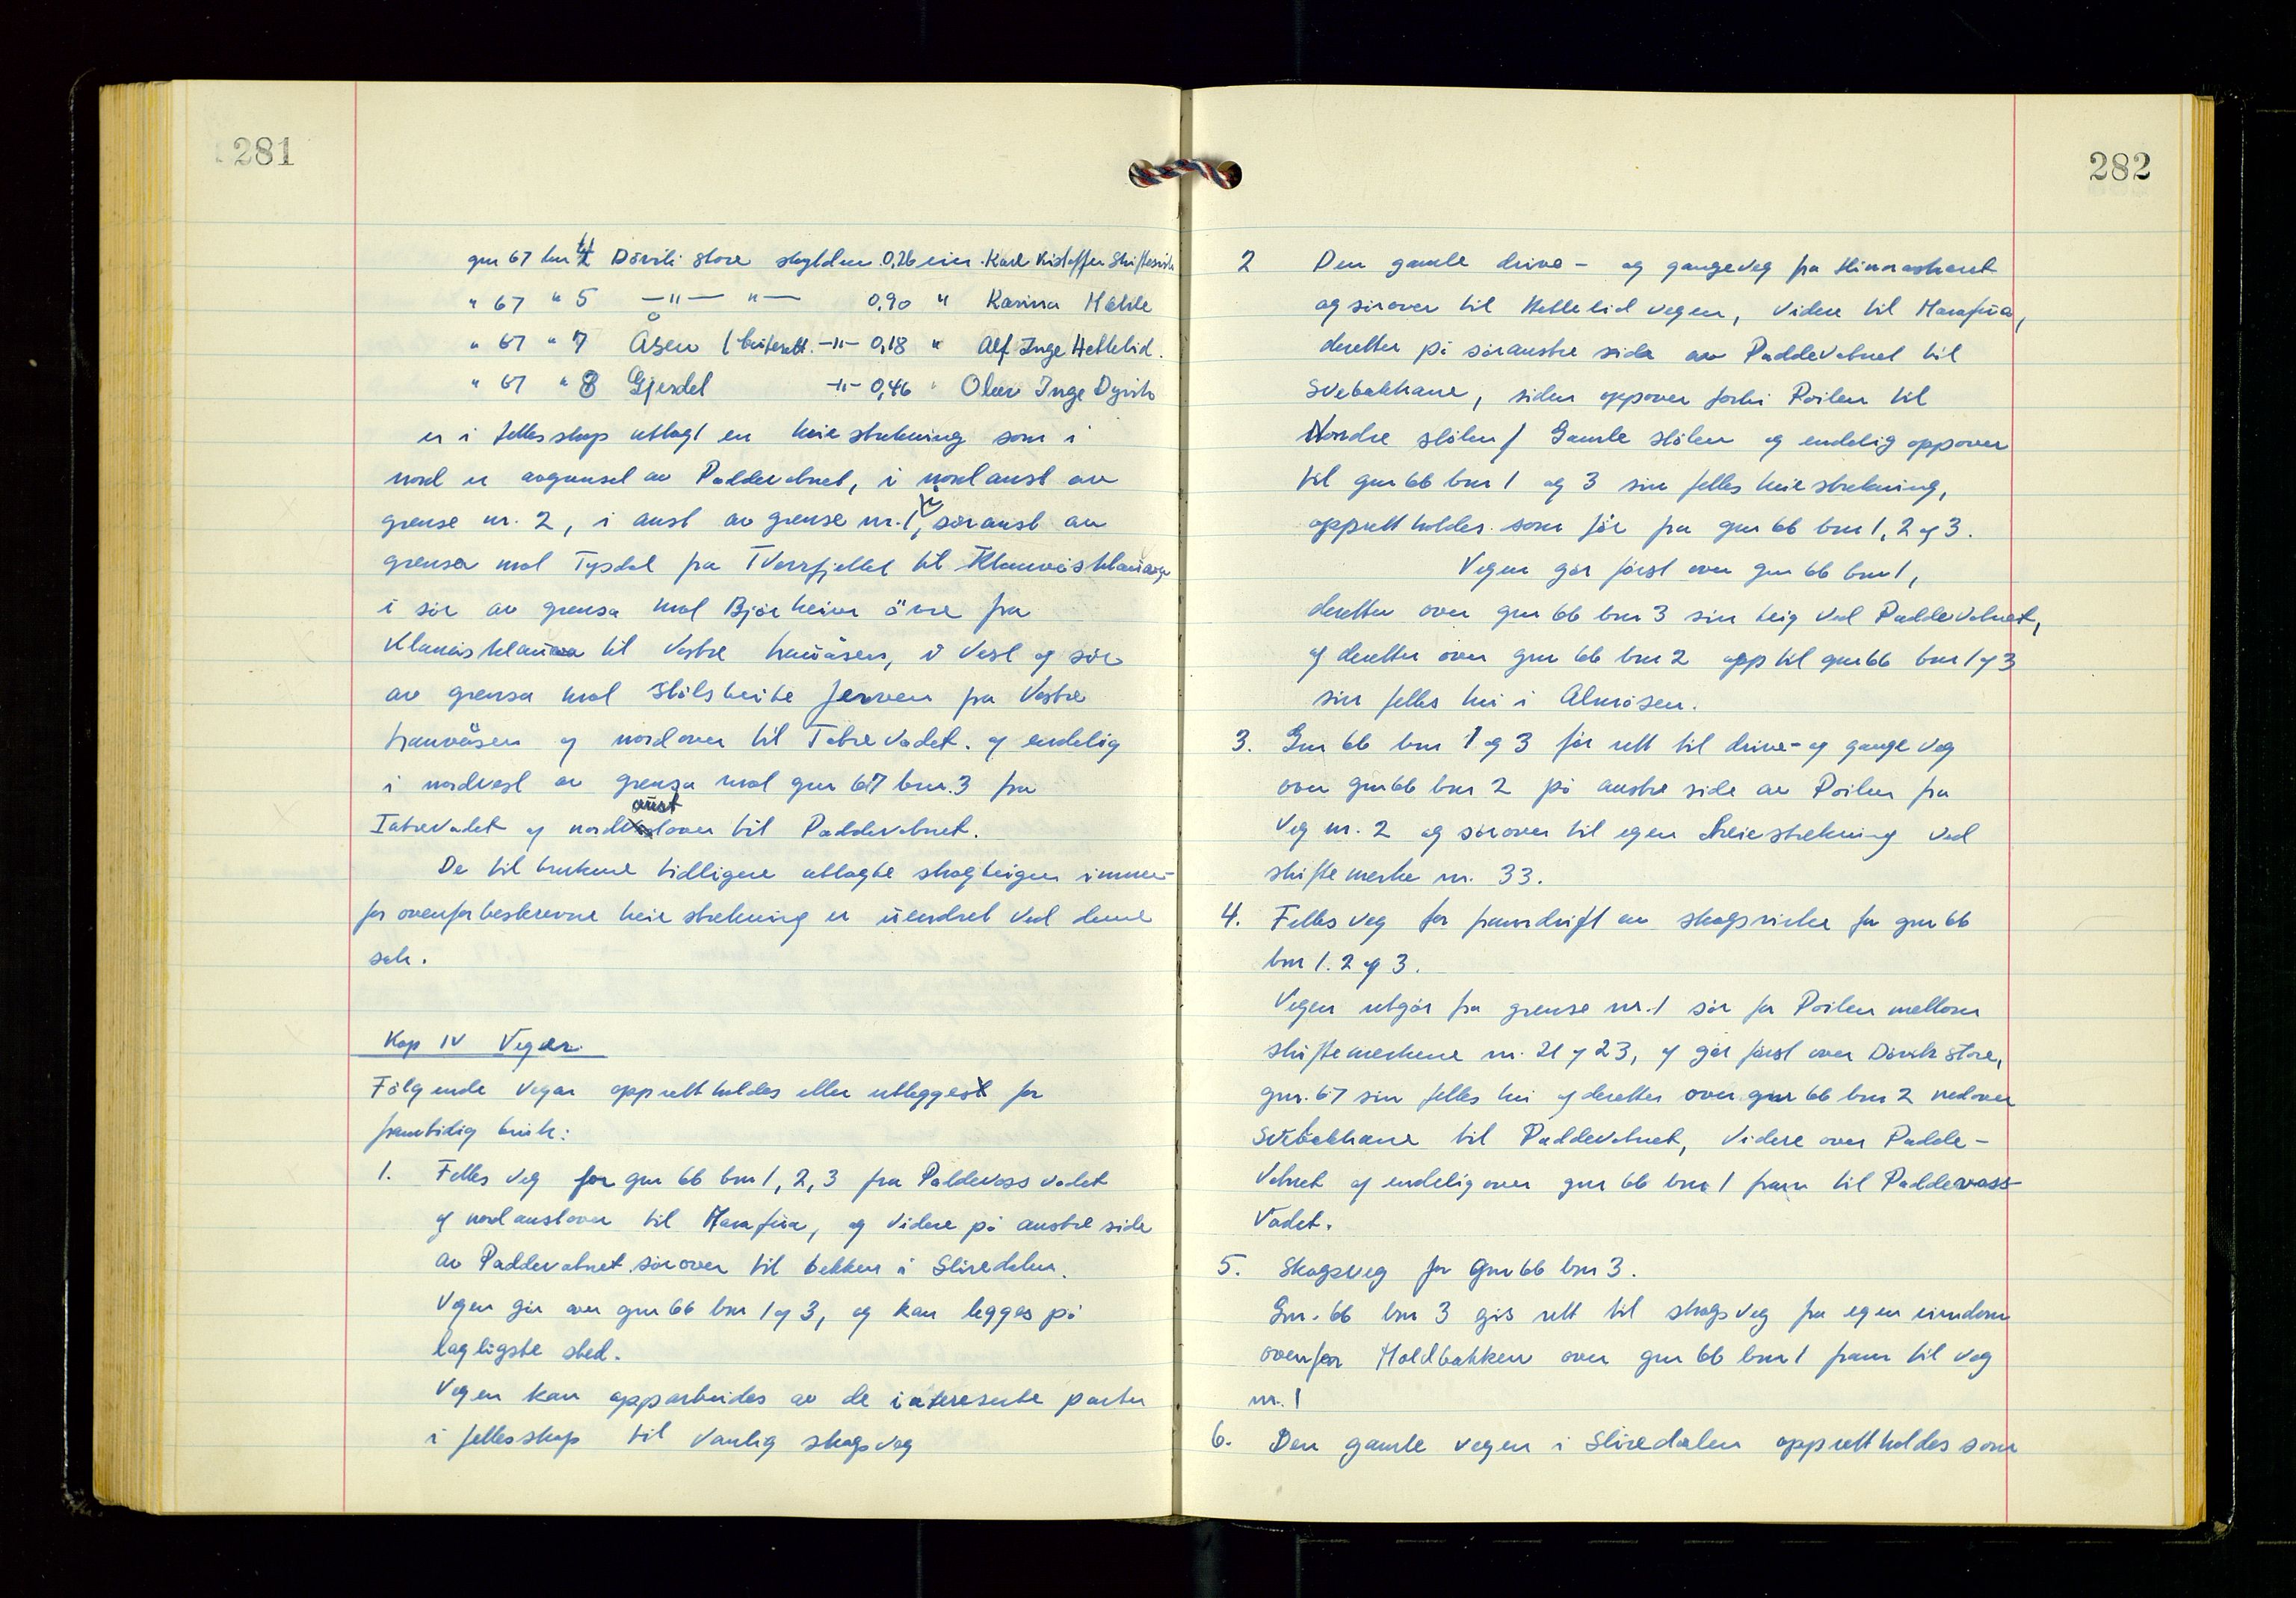 281
gnr 67 bnr 4 Dörvik store skyldm. 0,26 eier. Karl Kristoffer Skiftesvik
" 67 " 5 —"— "— 0,90 " Karina Hähle
" 67 " 7 Åsen (beiterett. —"— 0,18 " Alf Inge Hettelid.
" 67 " 8 Gjesdel —"— 0,46 " Olav Inge Dyvik
er i fellesskap utlagt en heiestrekning som i
nord er avgrenset av Paddevatnet, i nordaust av
grense nr. 2, i aust av grense nr. 1, i söraust av
grensa mot Tysdal fra Tverrfjellet til
i sör av grensa mot Bjørheim övre fra
til Vestre i vest og sör
av grensa mot Stölsbeite Jerven fra Vestre
og nordover til Tabrevadet. og endelig
i nordvest av grensa mot gnr 67 bnr. 3 fra
Tabrevadet og nordaustover til Paddevatnet.
De til brukene tidligere utlagte skogteiger innen-
for ovenforbeskrevne heiestrekning er uendret ved denne
sak.
Kap IV Veger.
Fölgende vegar opprettholdes eller utlegges for
framtidig bruk:
1. Felles veg for gnr 66 bnr 1, 2, 3 fra Paddevassvadet
og nordaustover til Marafúa, og videre på austre side
av Paddevatnet sörover til bekken i Sliredalen.
Vegen går over gnr 66 bnr 1 og 3, og kan legges på
lagligste sted.
Vegen kan opparbeides av de interesserte parter
i fellesskap til vanlig skogsveg
282
2 Den gamle drive- og gangeveg fra
og sörover til Hettelid vegen, videre til Marafúa,
deretter på söraustre side av Paddevatnet til
Svebakkane, siden oppover forbi Poilen til
Nordre stölen / Gamle stölen og endelig oppover
til gnr 66 bnr 1 og 3 sin felles heiestrekning,
opprettholdes som för fra gnr 66 bnr 1, 2 og 3.
Vegen går först over gnr 66 bnr 1,
deretter over gnr 66 bnr 3 sin teig ved Paddevatnet,
og deretter over gnr 66 bnr 2 opp til gnr 66 bnr 1 og 3
sin felles hei i Almåsen.
3. Gnr 66 bnr 1 og 3 får rett til drive- og gangeveg
over gnr 66 bnr 2 på austre side av Poilen fra
veg nr. 2 og sörover til egen heiestrekning ved
skiftemerke nr. 33.
4. Felles veg for framdrift av skogsvirke for gnr 66
bnr 1. 2 og 3.
Vegen utgår fra grense nr. 1 sör for Poilen mellom
skiftemerkene nr. 21 og 23, og går först over Dörvik store,
gnr. 67 sin felles hei og deretter over gnr 66 bnr 2 nedover
Svebakkane til Paddevatnet, videre over Padde-
vatnet og endelig over gnr 66 bnr 1 fram til Paddevass
vadet.
5. Skogsveg for gnr 66 bnr 3.
Gnr. 66 bnr 3 gis rett til skogsveg fra egen eiendom
ovenfor Holdbakken over gnr 66 bnr 1 fram til veg
nr. 1
6. Den gamle vegen i Sliredalen opprettholdes som